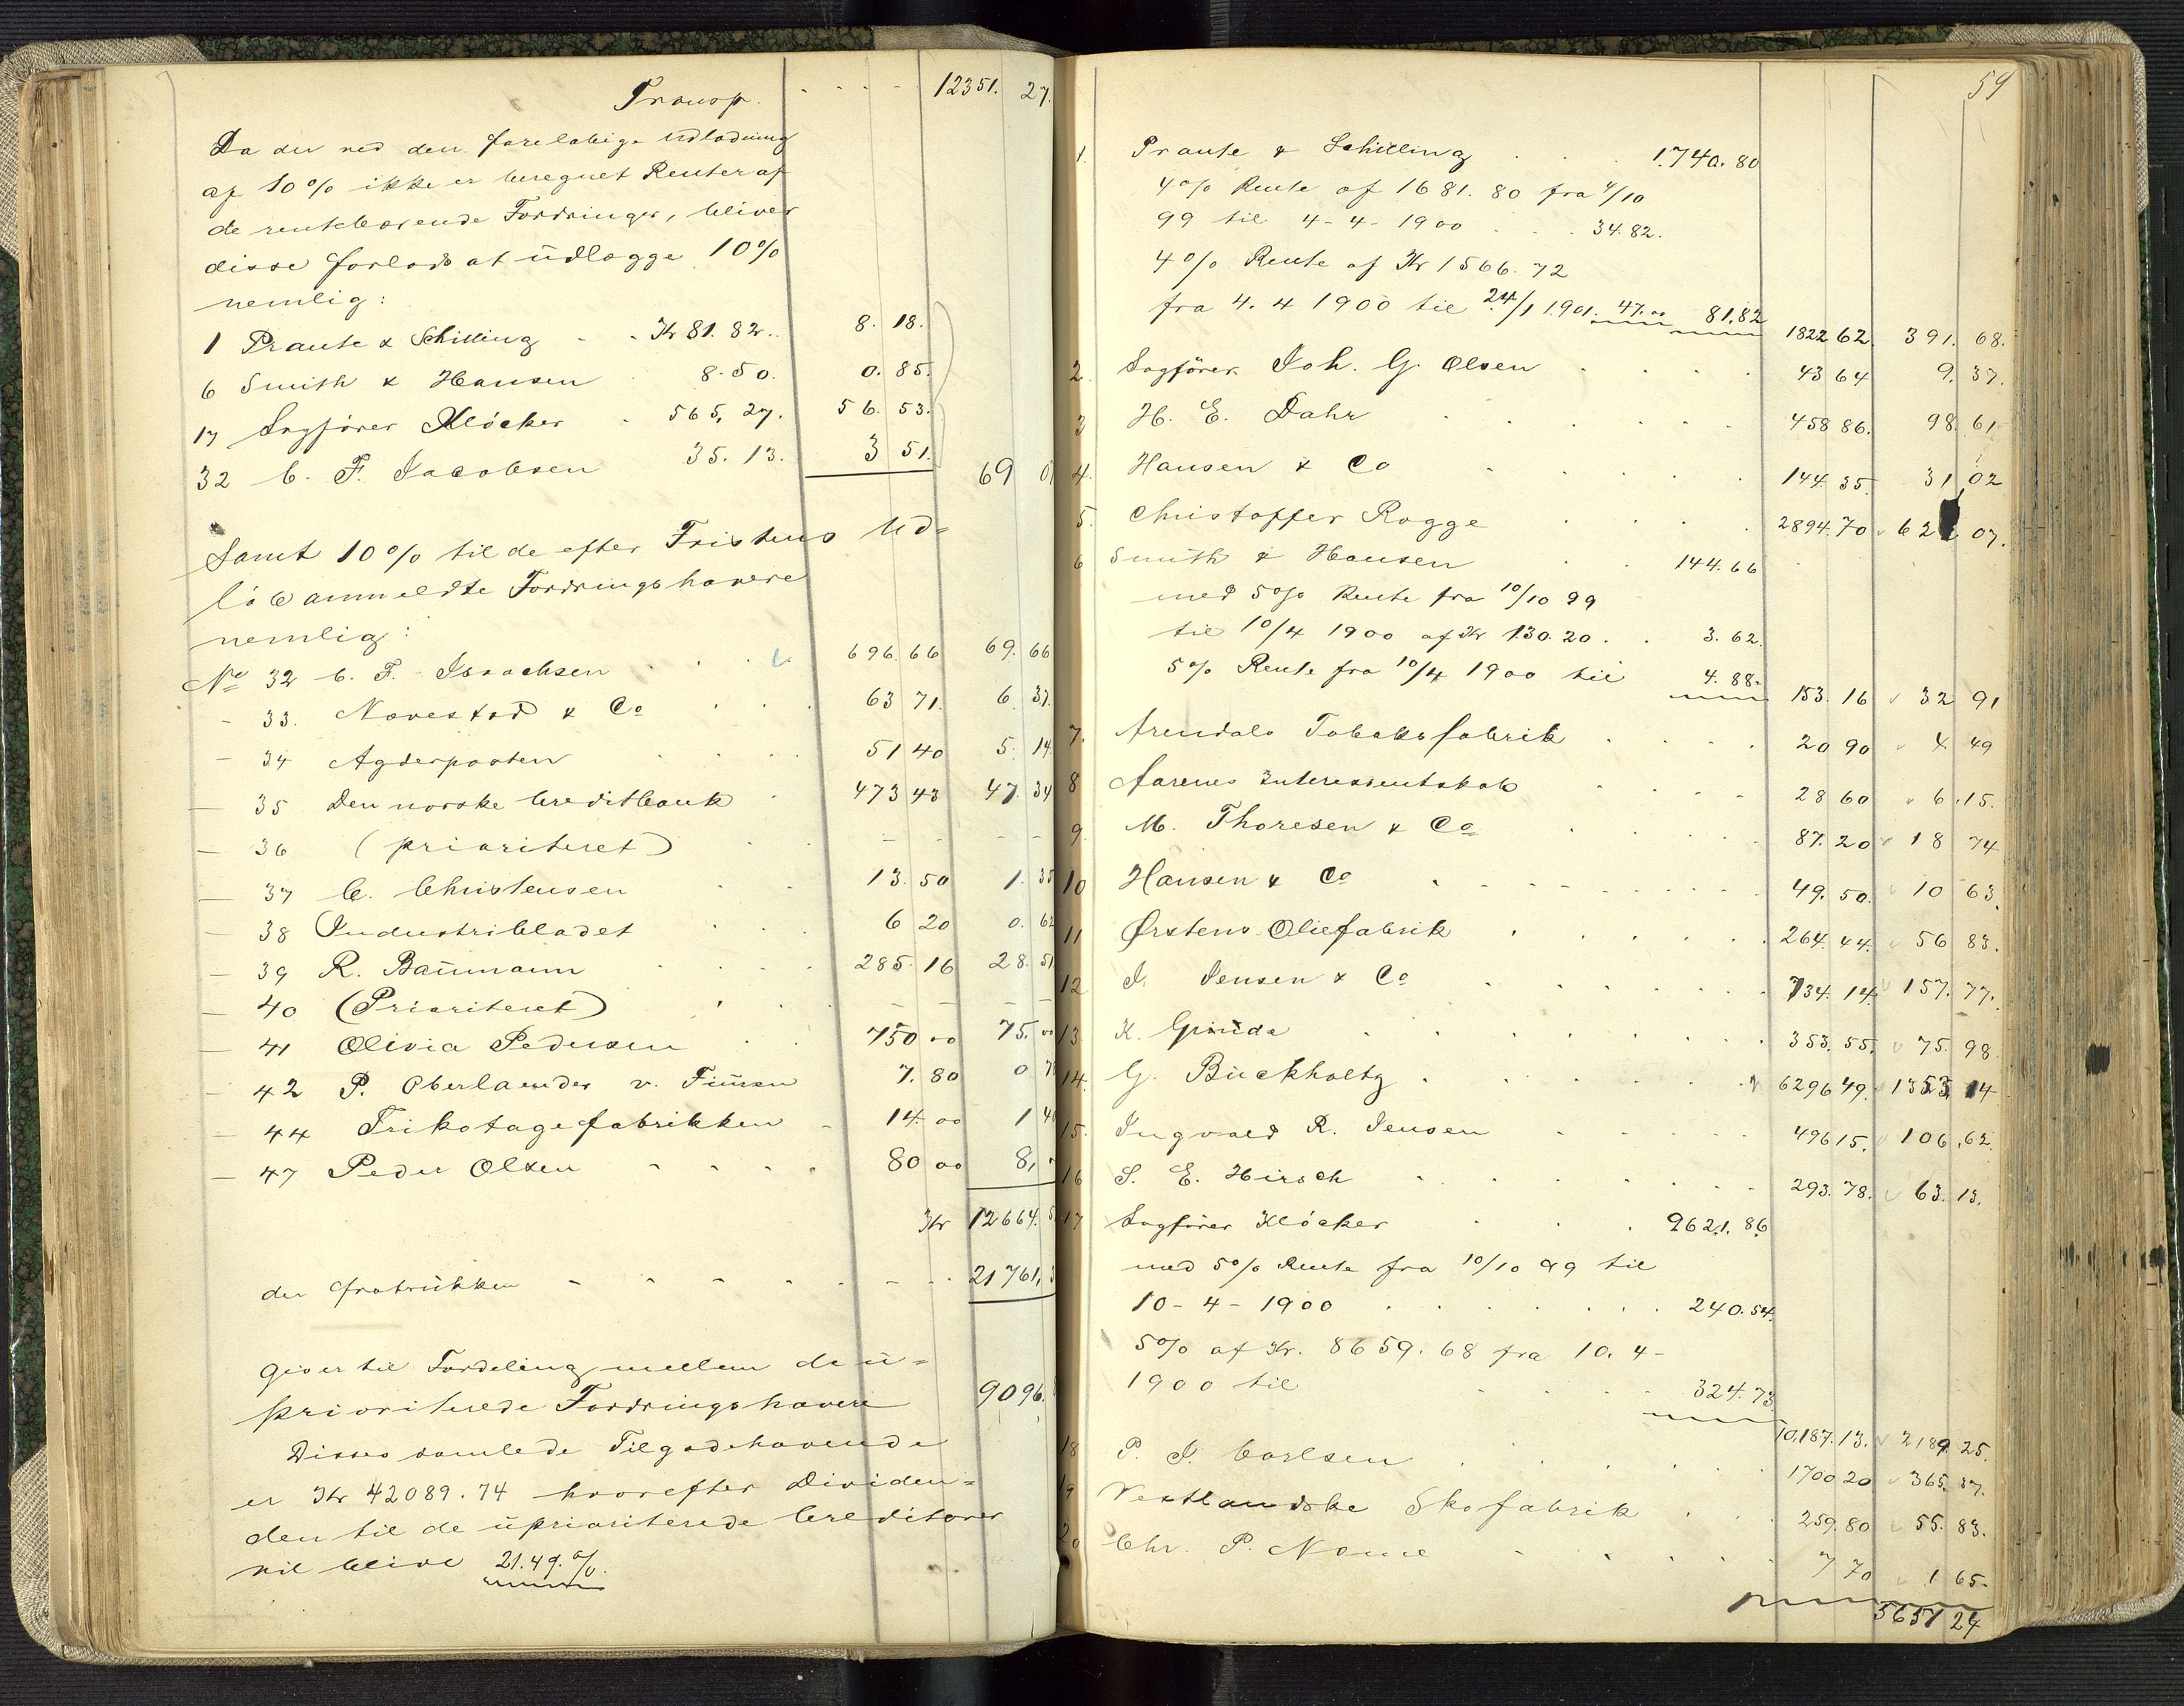 Transp. 12351. 27.
Da der ved den foreløbige Udlodning
af 10% ikke er beregnet Renter af
de rentebærende Fordringer, bliver
disse forlods at udlægge 10%
nemlig:
1 Praute & Schilling Kr 81. 82. 8. 18.
6 Smith & Hansen 8. 50. 0. 85.
17 Sagfører Kløcker 565, 27. 56. 53.
32 C. F. Jacobsen 35. 13. 3 51. 69 0
Samt 10% til de efter Fristens Ud-
løb anmeldte Fordringshavere
nemlig:
No 32 C. F. Isaachsen 696. 66 69. 66
- 33. Navestad & Co 63 71. 6. 37.
- 34 Agderposten 51 40 5. 14
- 35 Den norske Creditbank 473 43 47. 34
- 36 (prioriteret) - - - -
- 37 C. Christensen 13. 50 1. 35
- 38 Industribladet 6 20 0. 62
- 39 R. Baumann 285. 16 28. 51
- 40 (Prioriteret) - - - -
- 41 Olivia Pedersen 750 00 75. 00
- 42 P. Oberlaender v. 7. 80 0 7
- 44 Trikotagefabrikken 14. 00 1 40
- 47 Peder Olsen 80 00 8,
Kr 12664.
der fratrukken 21761,
Giver til Fordeling mellem de u=
prioriterede Fordringshavere 9096.
Disses samlede Tilgodehavende
er Kr 42089. 74 hvorefter Dividen=
den til de upriöriterede Creditorer
vil blive 21. 49. %.
59
1. Praute & Schilling 1.740. 80
4% Rente af 1681. 80 fra 4/10
99 til 4-4-1900 34. 82.
4% Rente af Kr 1566. 72
fra 4. 4 1900 til 24/1 1901. 47. 00 81. 82 1822 62. 391. 68.
2. Sagfører Joh. G. Olsen 43 64 9. 37.
3 H. E. Dahr 458 86. 98. 61
4. Hansen & Co 144. 35. 31 02
5. Christoffer Rogge 2894. 70 622 07.
6 Smith & Hansen 144. 66
med 5% Rente fra 10/10 99
til 10/4 1900 af Kr 130. 20. 3. 62.
5% Rente fra 10/4 1900 til 4. 88. 153. 16 32 91
7. Arendals Tobaksfabrik 20 90 4. 49
8 Farenes Interessentskab 28 60 6. 15.
9. M. Thoresen & Co 87. 20 18 74
10 Hansen & Co 49. 50. 10 63.
11 Ørstens Oliefabrik 264. 44. 56 83.
12 J. Jensen & Co 734. 14 157. 77.
13. K. Gruda 353. 55. 75. 98.
14. G. Buckholtz 6296 49. 1353 14
15. Ingvald R. Jensen 496 15. 106. 62.
16 S. E. Hirsch 293. 78. 63. 13.
17 Sagfører Kløcker 9621. 86
med 5% Rente fra 10/10 99 til
10-4-1900 240. 54.
5% af Kr. 8659. 68 fra 10. 4-
1900 til 324. 73. 10,187. 13. 2189. 25.
18 P. J. Carlsen 1700 20 365. 37.
19 Vestlandske Skofabrik 259. 80 55. 83.
20 Chr. P. Nome 7 70 1 65.
5651 24